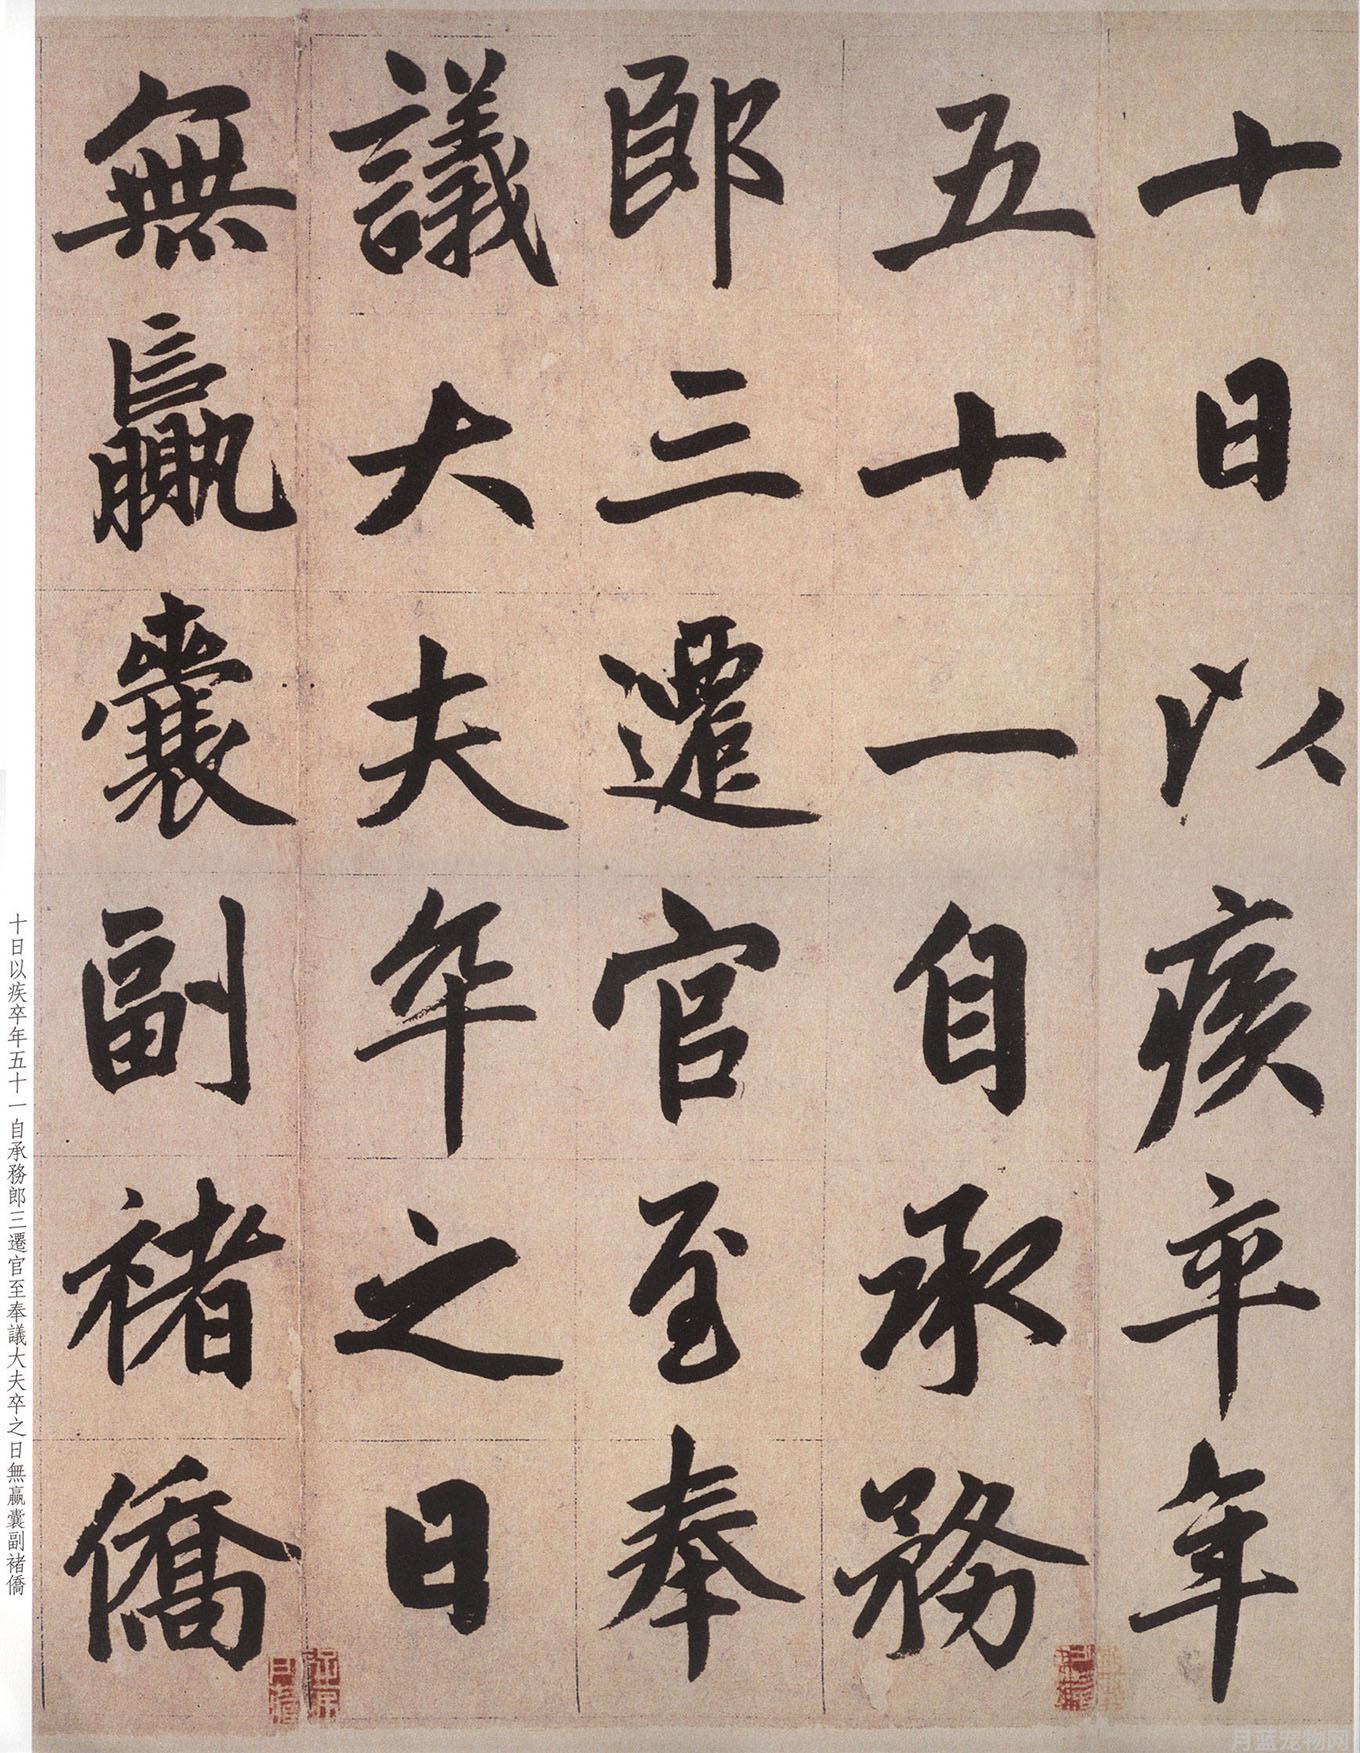 十日以疾卒年
五十一自承務
郎三遷官至奉
議大夫卒之日
無羸囊副褚僑
十日以疾卒年五十一自承務郎三遷官至奉議大夫卒之日無羸囊副褚僑
月蓝宠物网